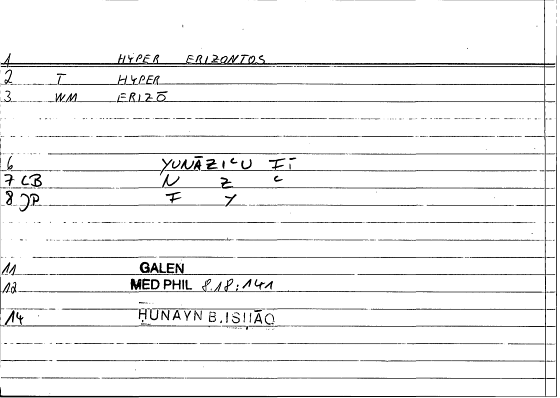 1 HYPER ERIZONTOS
2 T HYPER
3 WM ERIZŌ
6 YUNĀZIʿU FĪ
7 LB N Z ʿ
8 JP F Y
11 GALEN
12 MED PHIL 8.18:141
14 ḤUNAYN B.ISḤĀQ